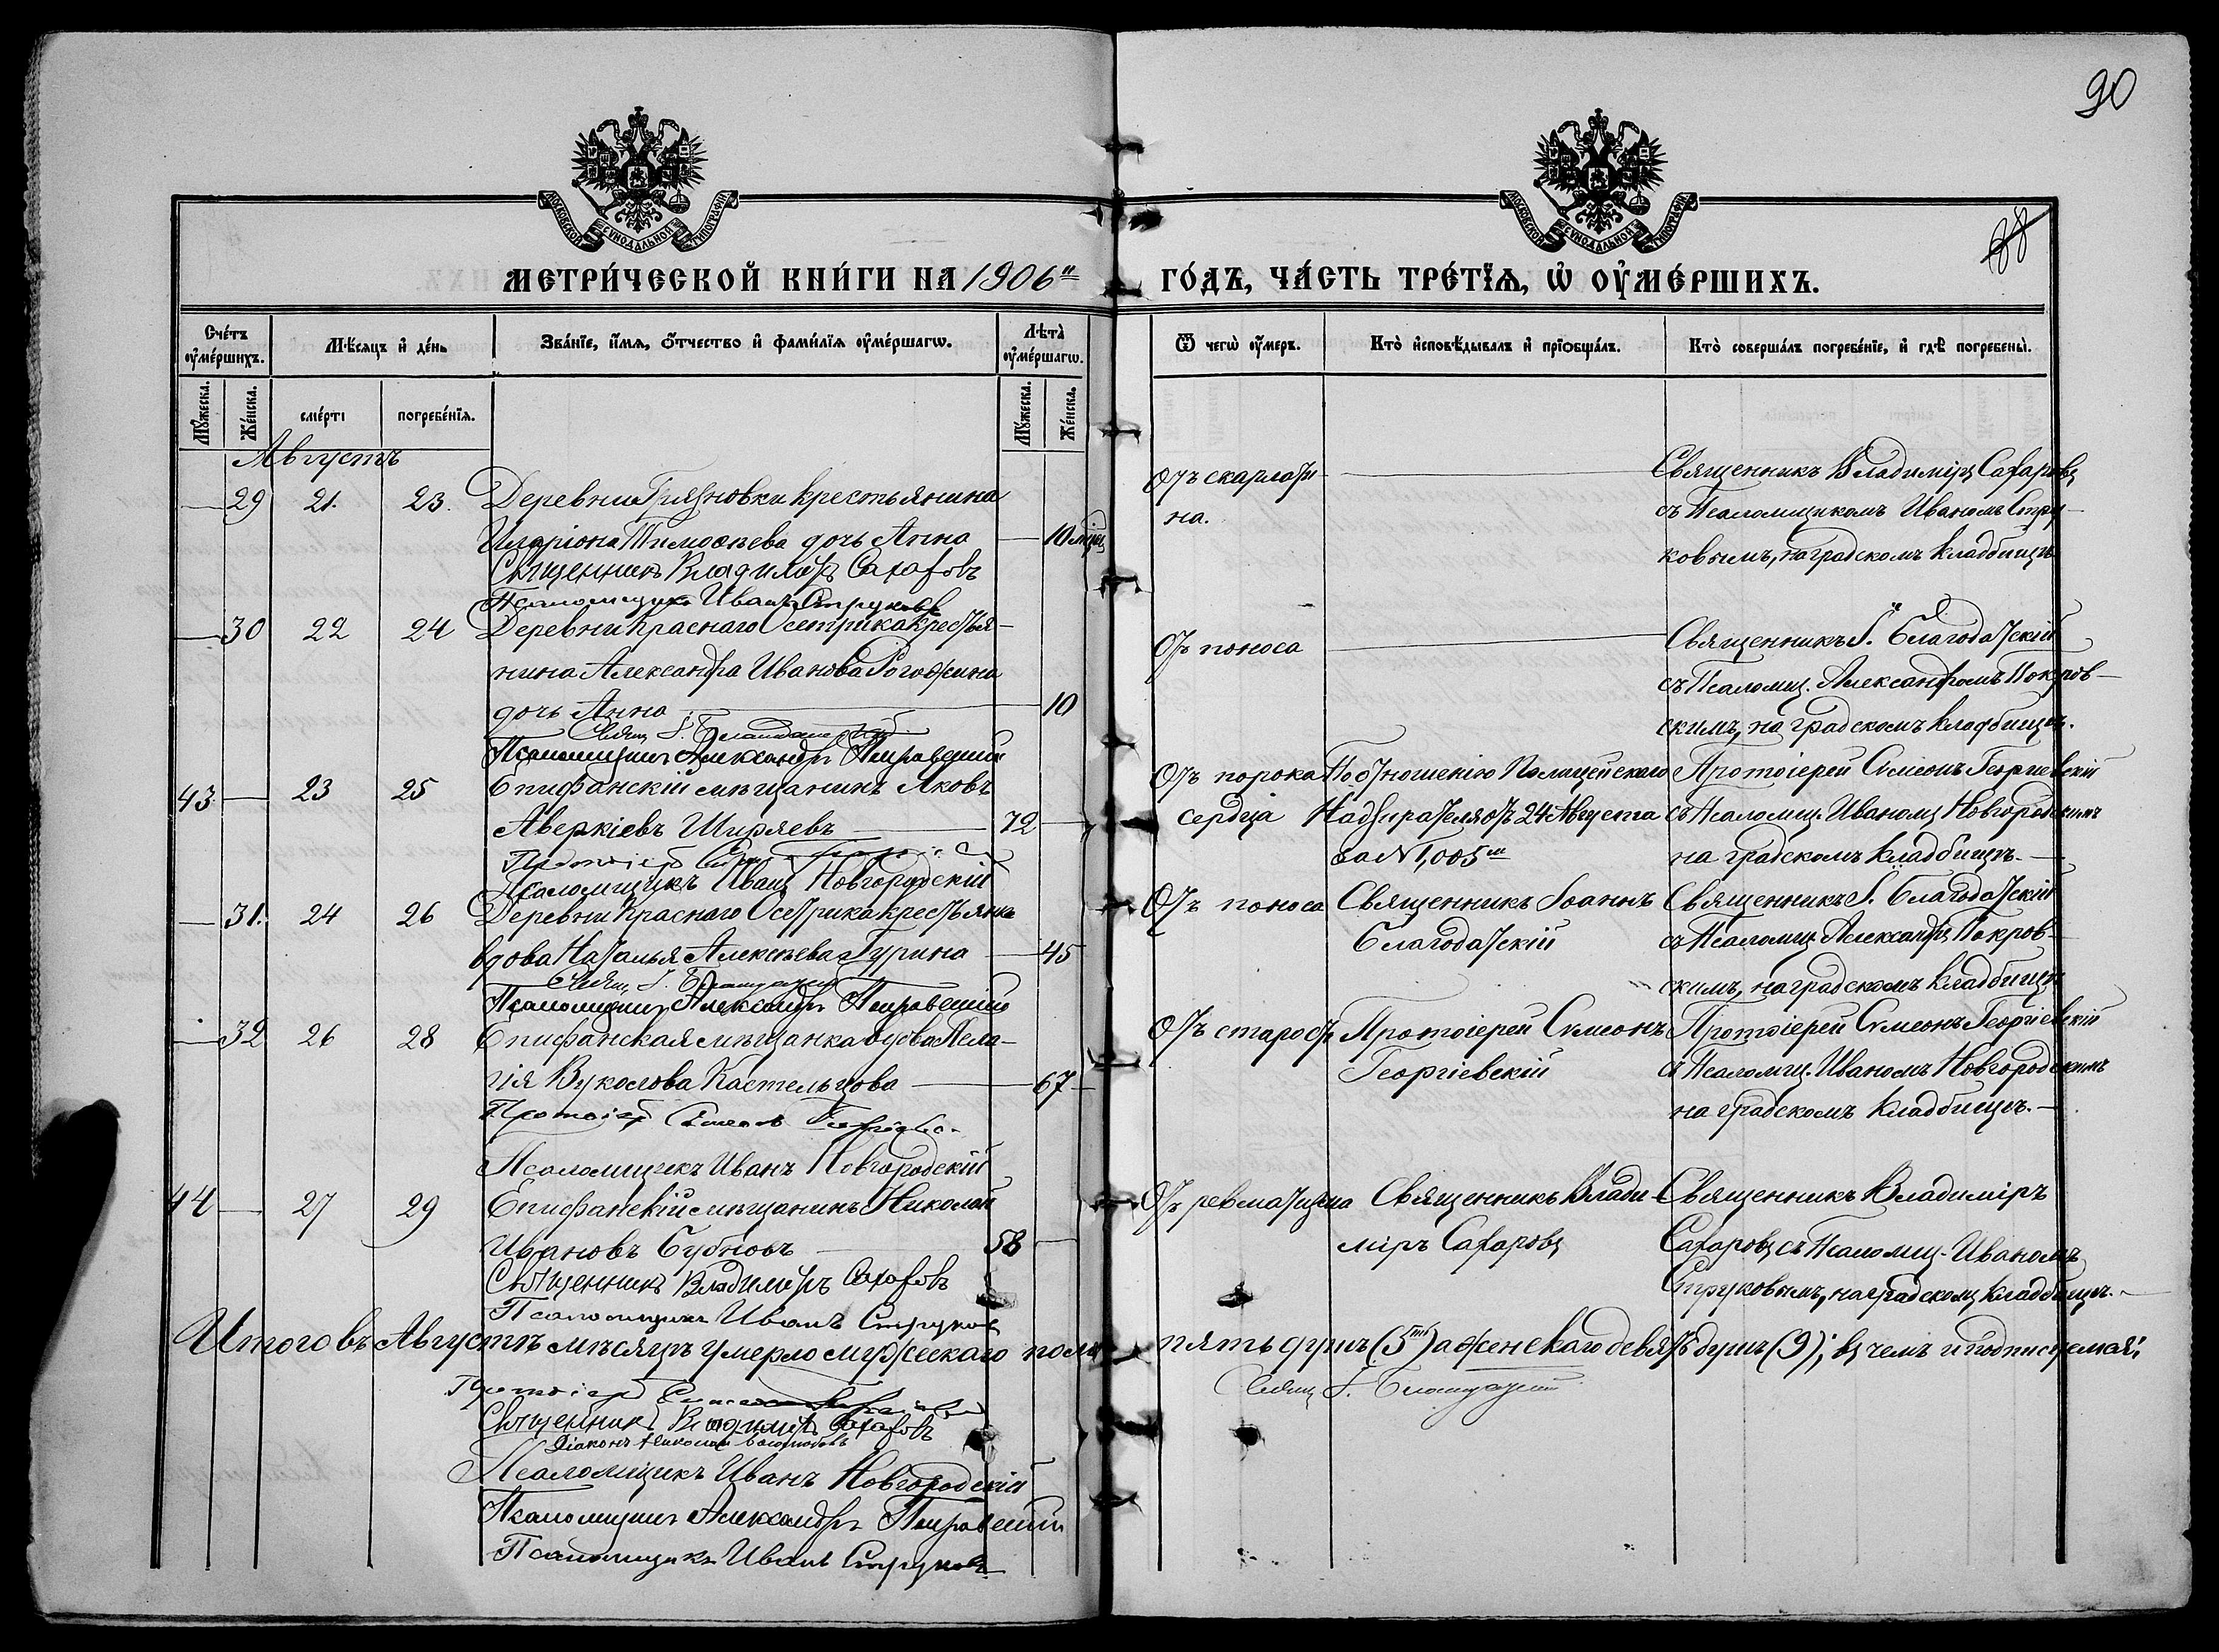 90
88
МОСКОВСКОЙ СѴНОДАЛЬНОЙ ТИПОГРАФІИ
МОСКОВСКОЙ СѴНОДАЛЬНОЙ ТИПОГРАФІИ
МЕТРИ́ЧЕСКОЙ КНИ́ГИ НА 1906 ГО́ДЪ, ЧА́СТЬ ТРЕ́ТЇѦ, Ѡ҆ ОУ҆МЕ́РШИХЪ.
Сче́тъ оу҆ме́ршихъ.
Мѣ́сѧцъ и҆ де́нь
Зва́нїе, и҆́мѧ, ѻ҆́тчество и҆ фами́лїѧ оу҆ме́ршагѡ.
Лѣ́та оу҆ме́ршагѡ.
Ѿ чегѡ̀ оу҆́меръ.
Кто̀ и҆сповѣ́дывалъ и҆ прїѡбща́лъ.
Кто̀ соверша́лъ погребе́нїе, и҆ гдѣ̀ погребены̀.
Мꙋ́жеска.
Же́нска.
сме́рти
погребе́нїѧ.
Мꙋ́жеска.
Же́нска.
Августъ
— 29 21. 23. Деревни Грязновки крестьянина
Иларіона Тимоѳеева дочь Анна — 10 мѣсяц
Священникъ Владиміръ Сахаровъ
Псаломщикъ Иванъ Струковъ
Отъ скарлати-
на.
Священникъ Владиміръ Сахаровъ
съ Псаломщикомъ Иваномъ Стру-
ковымъ, на градскомъ кладбищѣ
— 30 22 24 Деревни Краснаго Осетрика крестья-
нина Александра Иванова Рогожина
дочь Анна — 10
Свящ. І. Благодатскій
Псаломщикъ Александръ Покровскій
Отъ поноса
Священникъ І. Благодатскій
съ Псаломщ. Александромъ Покров-
скимъ, на градскомъ кладбищѣ.
43 — 23 25 Епифанскій мѣщанинъ Яковъ
Аверкіевъ Ширяевъ — 72 —
Протоіерей
Псаломщикъ Иванъ Новгородскій
Отъ порока
сердца
По отношенію Полицейскаго
Надзирателя отъ 24 Августа
за № 1,005
Протоіерей Сѵмеонъ Георгіевскій
съ Псаломщ. Иваномъ Новгородскимъ
на градскомъ кладбищѣ. —
— 31. 24 26 Деревни Краснаго Осетрика крестьянка
вдова Наталья Алексѣева Гурина — 45
Свящ. І. Благодатскій
Псаломщикъ Александръ Покровскій
Отъ поноса
Священникъ Іоаннъ
Благодатскій
Священникъ І. Благодатскій
съ Псаломщ. Александр. Покров-
скимъ, на градскомъ кладбищѣ
— 32 26 28 Епифанская мѣщанка вдова Пела-
гія Вуколова Кастельцова — 67 —
Протоіерей Сѵмеонъ Георгіевс.
Псаломщикъ Иванъ Новгородскій
Отъ старости
Протоіерей Сѵмеонъ
Георгіевскій
Протоіерей Сѵмеонъ Георгіевскій
съ Псаломщ. Иваномъ Новгородскимъ
на градскомъ кладбищѣ. —
44 — 27 29 Епифанскій мѣщанинъ Николай
Ивановъ Бубновъ — 58 —
Священникъ Владиміръ Сахаровъ
Псаломщикъ Иванъ Струковъ
Отъ ревматизма
Священникъ Влади-
міръ Сахаровъ
Священникъ Владиміръ
Сахаровъ съ Псаломщ. Иваномъ
Струковымъ, на градскомъ кладбищѣ. —
Итого въ Августѣ мѣсяцѣ умерло мужескаго пола пять душъ (5) а женскаго девять душъ (9); въ чемъ и подписуемся:
Протоіерей
Свящ. І. Благодатскій
Священникъ Владиміръ Сахаровъ
Діаконъ Николай
Псаломщикъ Иванъ Новгородскій
Псаломщикъ Александръ Покровскій
Псаломщикъ Иванъ Струковъ